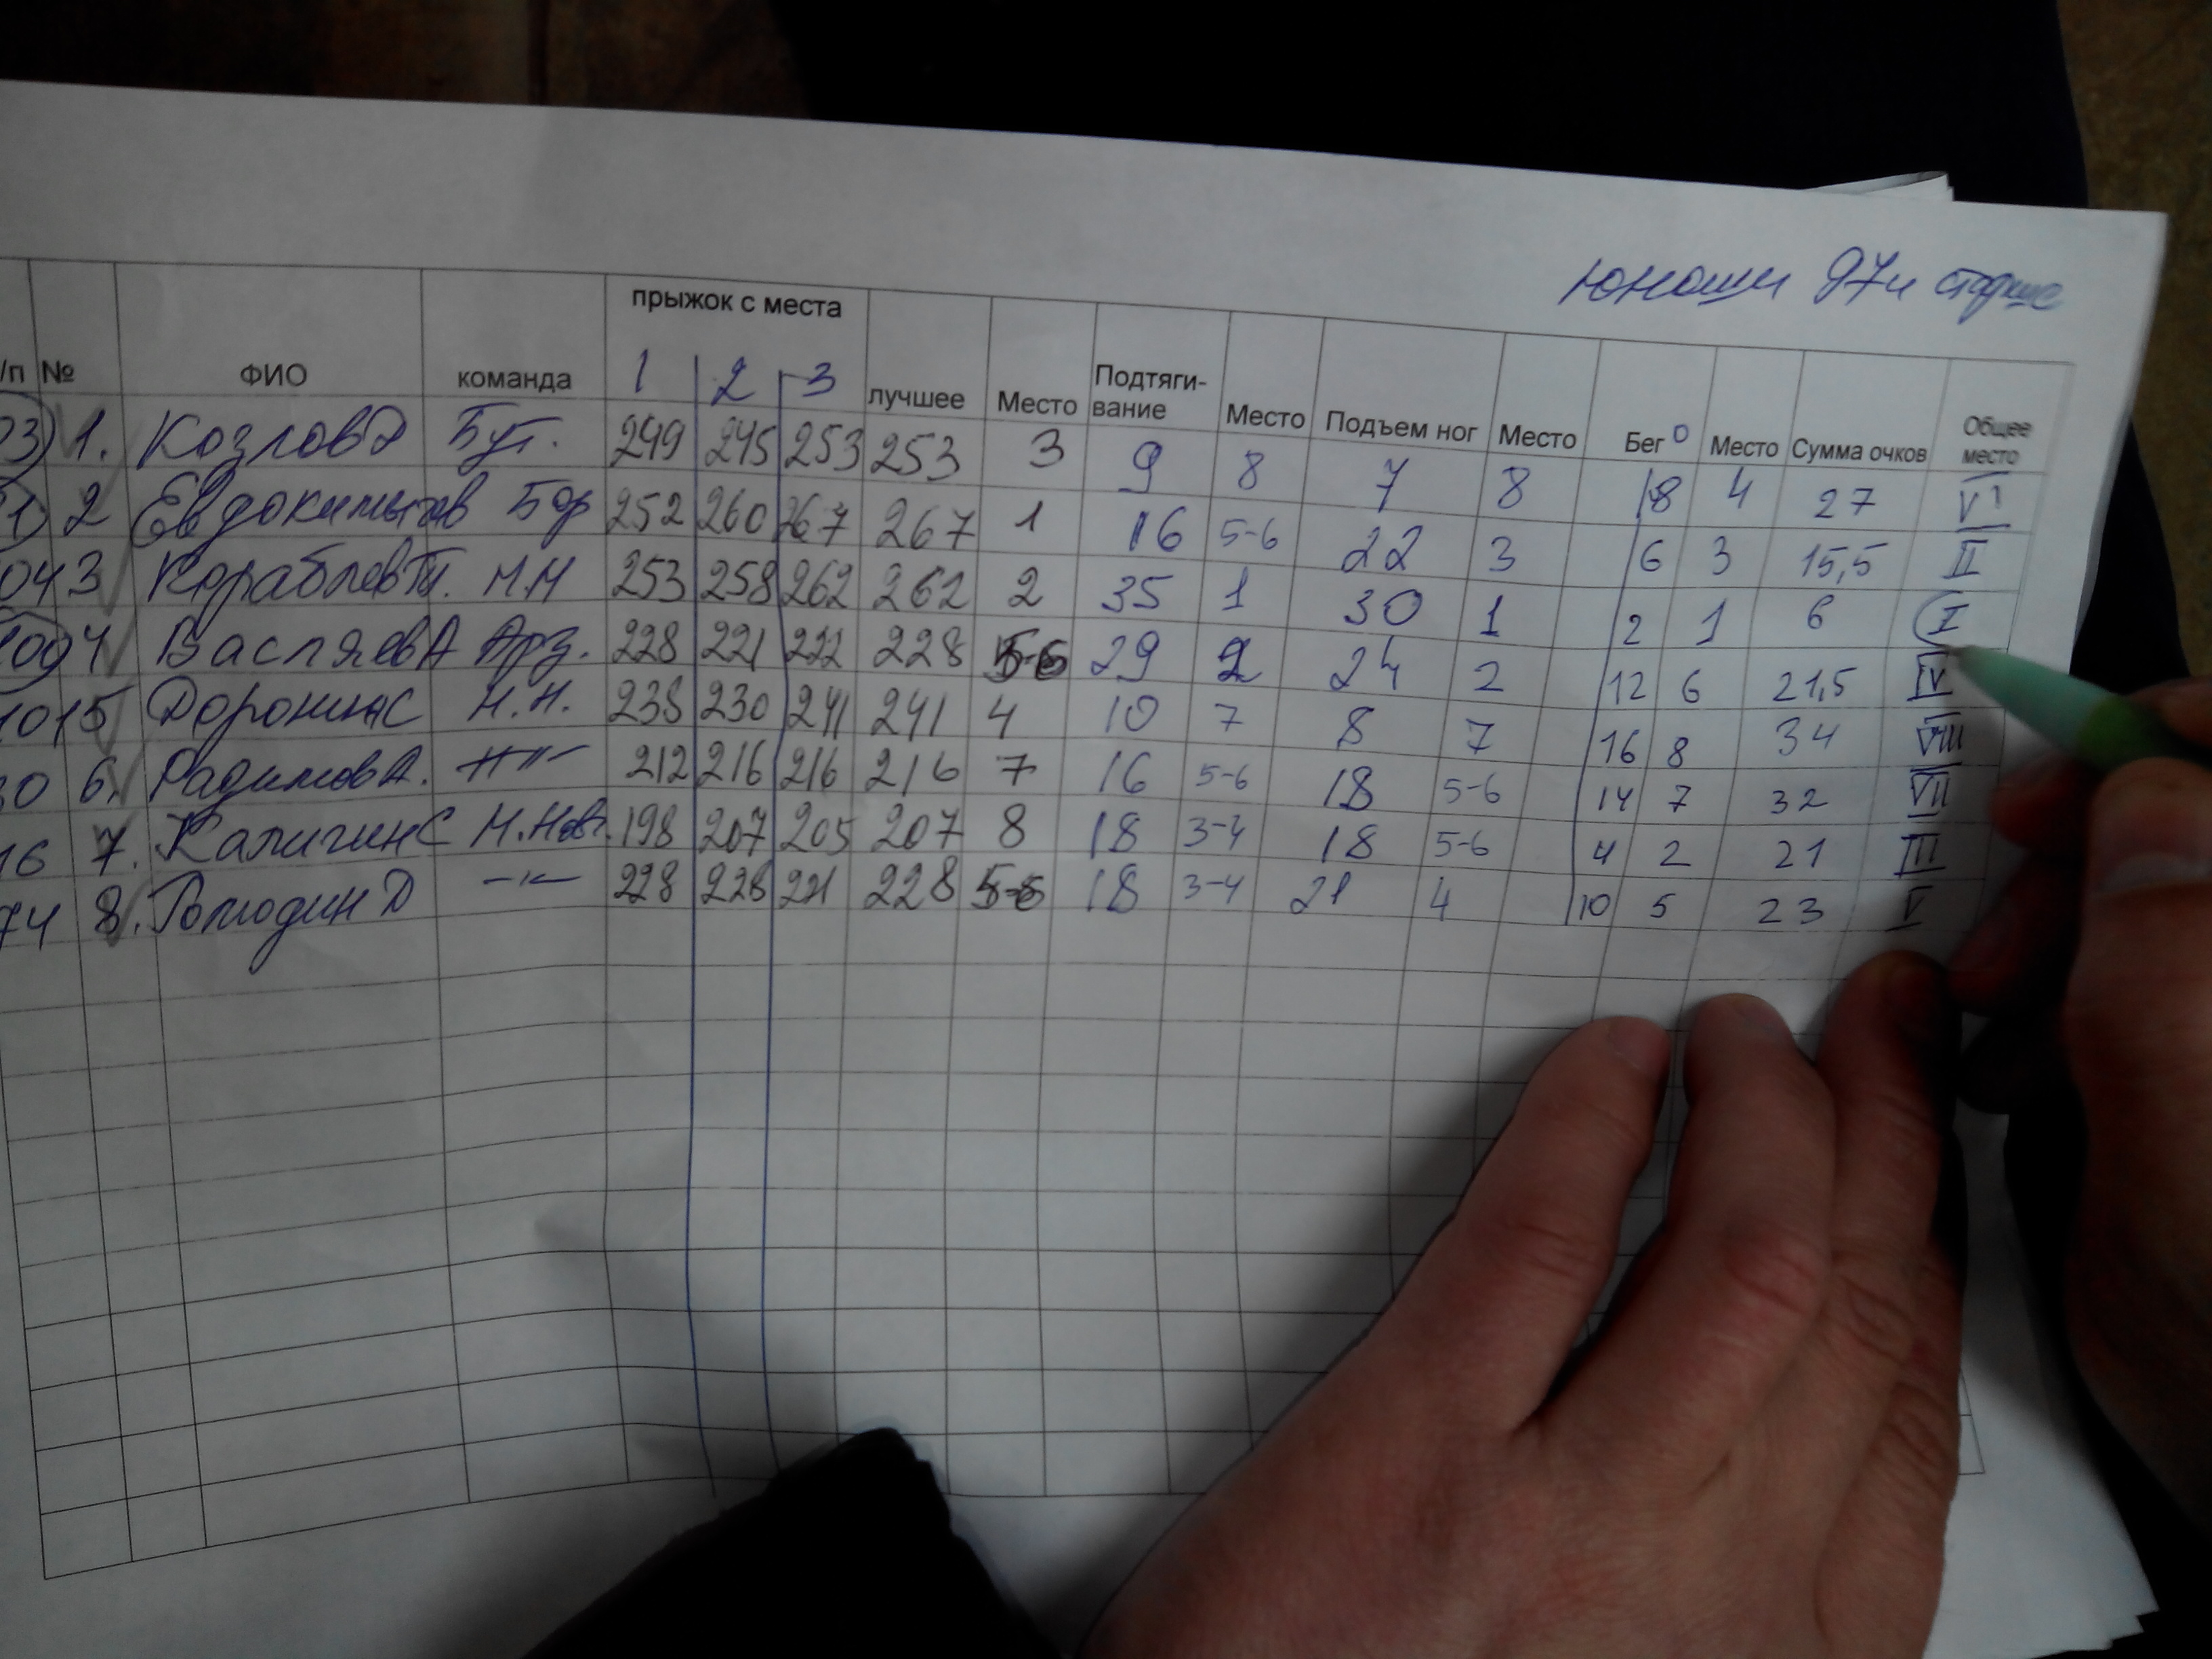 юноши 97 и старше
/п № ФИО команда прыжок с места 1 2 3 лучшее Место Подтяги-вание Место Подъем ног Место Бег Место Сумма очков Общее место
23 1. Козлов Д Бут. 249 245 253 253 3 9 8 7 8 18 4 27 VI
1 2 Евдокимов Бор 252 260 267 267 1 16 5-6 22 3 6 3 15,5 II
04 3 Кораблев П. Н.Н 253 258 262 262 2 35 1 30 1 2 1 6 I
009 4 Васляев А Арз. 228 221 222 228 5-6 29 2 24 2 12 6 21,5 IV
1015 Доронин С Н.Н. 238 230 241 241 4 10 7 8 7 16 8 34 VIII
30 6. Радимов А. -"- 212 216 216 216 7 16 5-6 18 5-6 14 7 32 VII
16 7. Калигин С Н.Нов. 198 207 205 207 8 18 3-4 18 5-6 4 2 21 III
74 8. Волюдин Д -"- 228 228 221 228 5-6 18 3-4 21 4 10 5 23 V